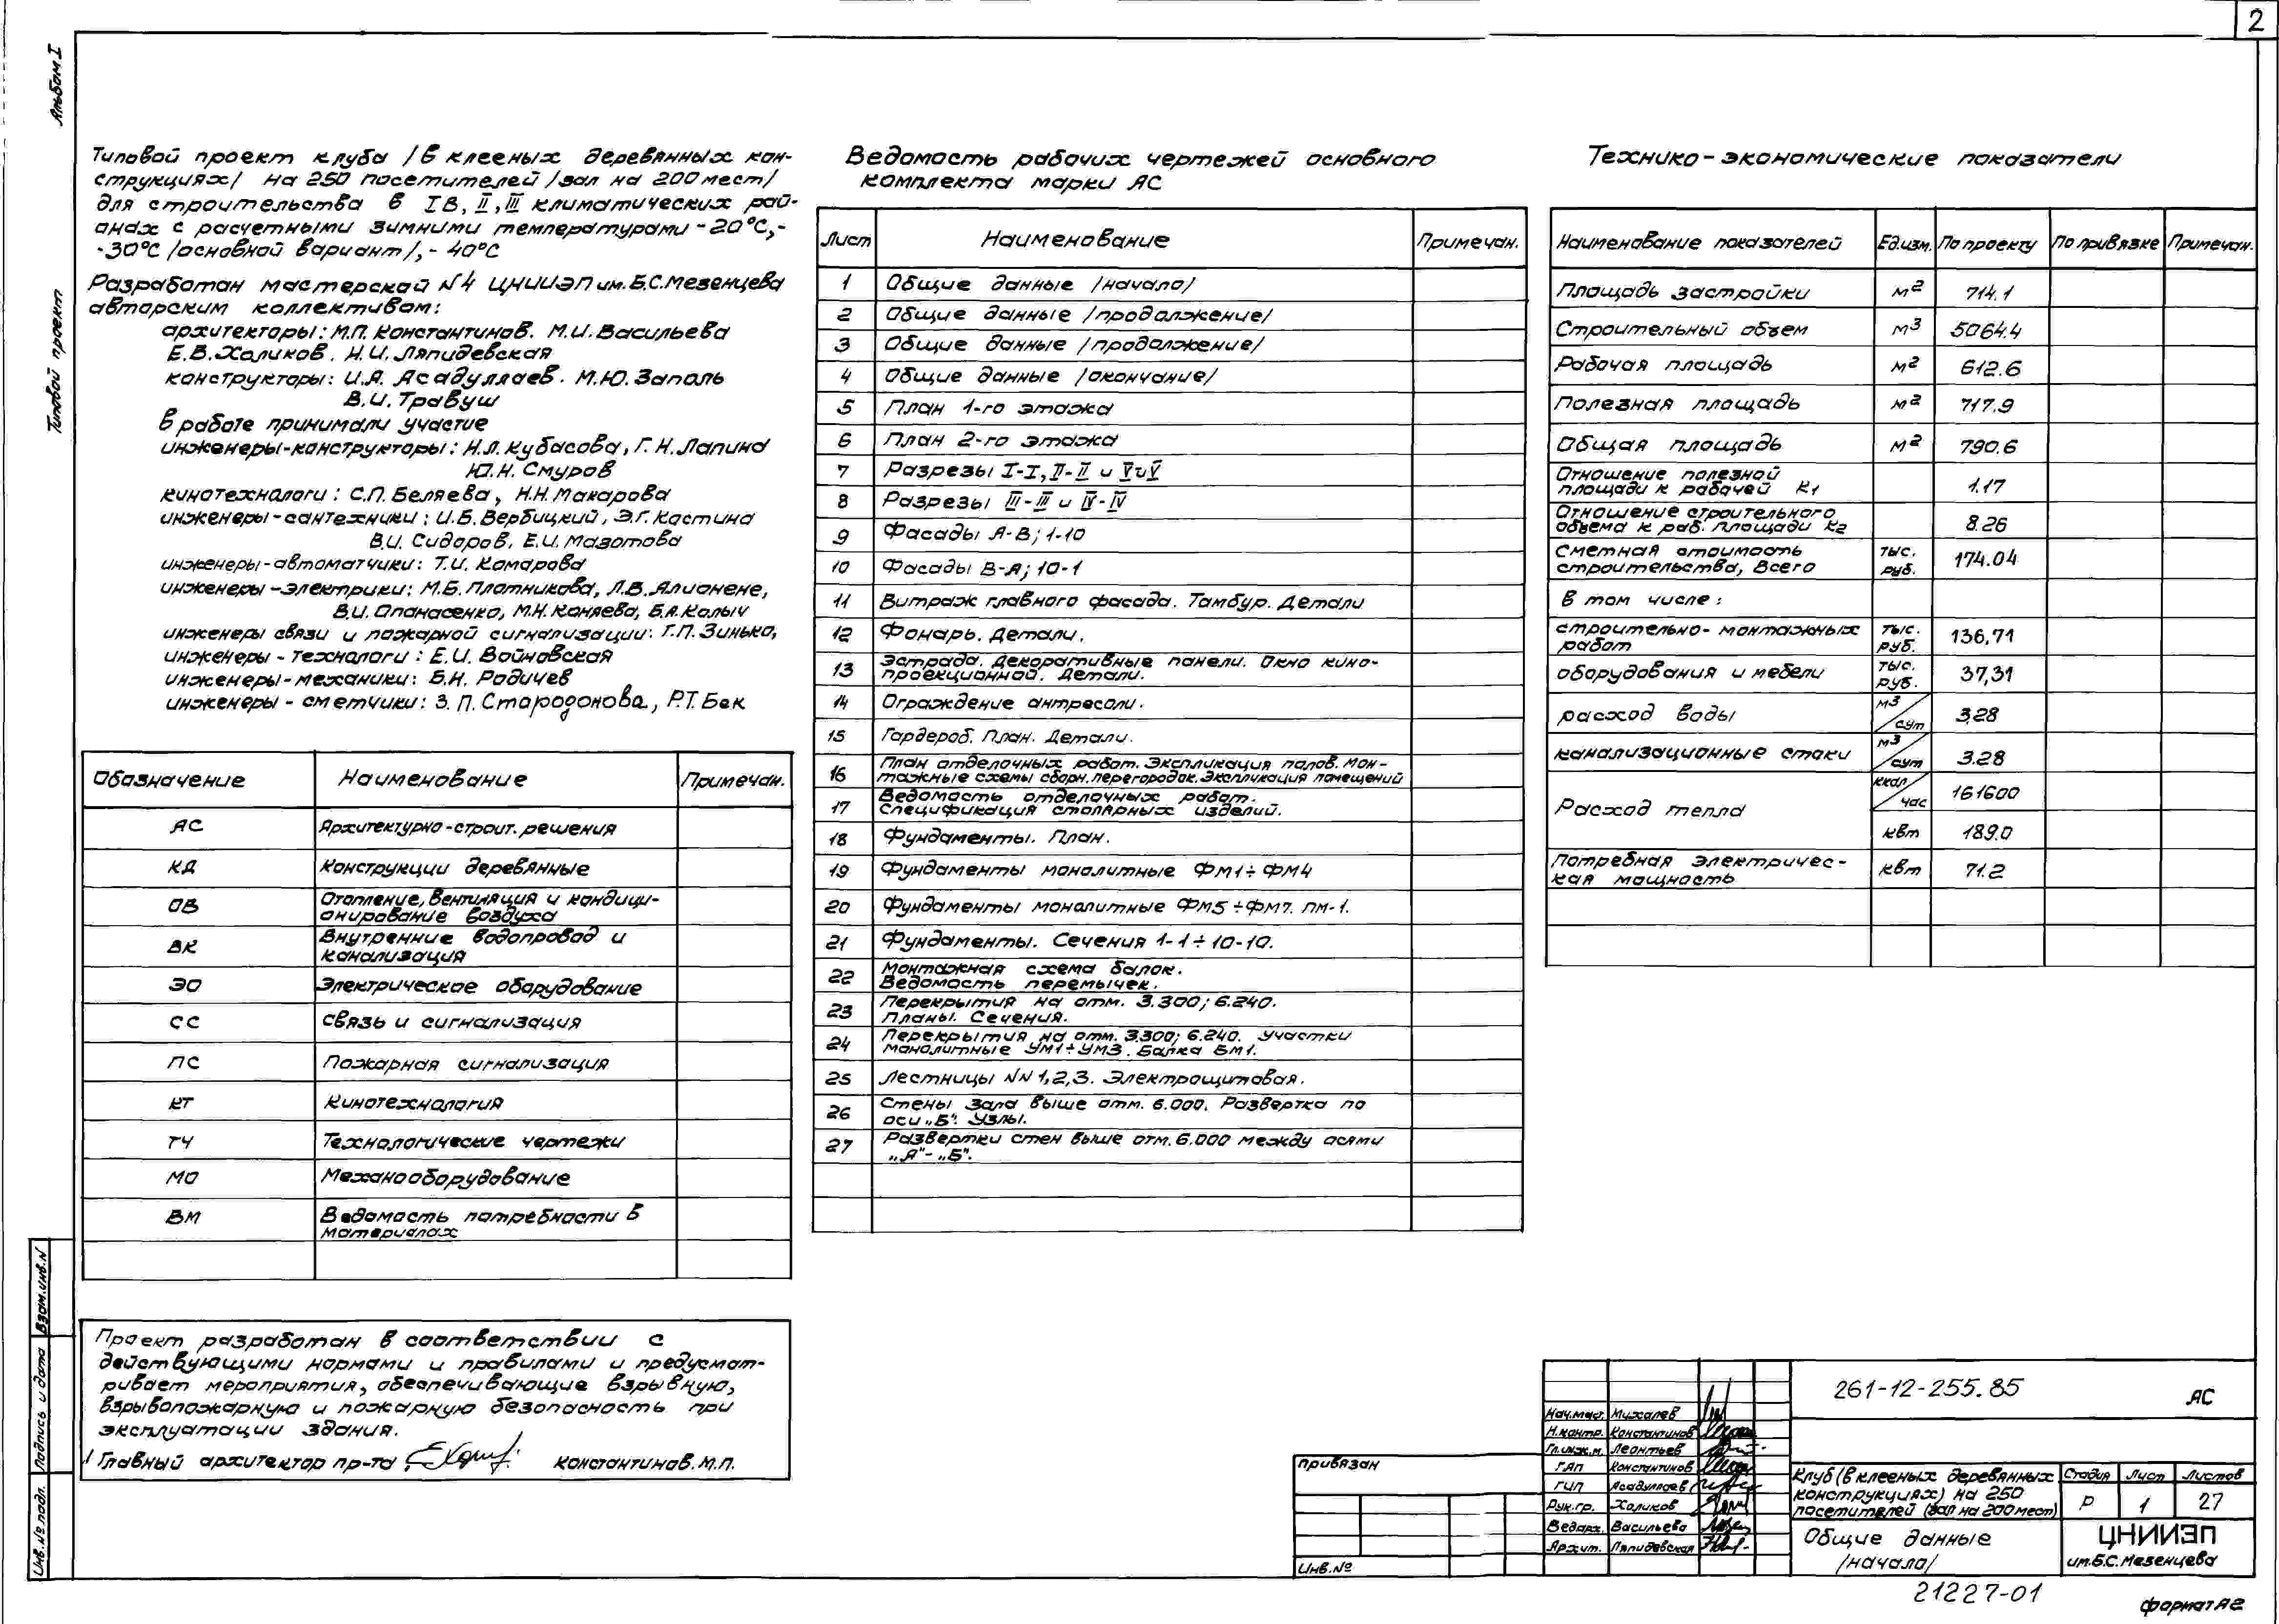 2
Альбом I
Типовой проект
Типовой проект клуба /в клееных деревянных кон-
струкциях/ на 250 посетителей /зал на 200 мест/
для строительства в IВ, II, III климатических рай-
онах с расчетными зимними температурами -20°С,-
-30°С /основной вариант/,- 40°С
Разработан мастерской N4 ЦНИИЭП им.Б.С.Мезенцева
авторским коллективом:
архитекторы: М.П. Константинов. М.И. Васильева
Е.В. Халиков. Н.И. Ляпидевская
конструкторы: И.А. Асадуллаев. М.Ю. Заполь
В.И. Травуш
в работе принимали участие
инженеры-конструкторы: Н.Л. Кубасова, Г.Н. Лапина
Ю.Н. Смуров
кинотехнологи: С.П. Беляева, Н.Н. Макарова
инженеры-сантехники: И.Б. Вербицкий, Э.Г. Костина
В.И. Сидоров, Е.И. Мазотова
инженеры-автоматчики: Т.И. Комарова
инженеры-электрики: М.Б. Плотникова, Л.В. Алионене,
В.И. Опанасенко, М.Н. Коняева, Б.Я. Колыч
инженеры связи и пожарной сигнализации: Г.П. Зинько,
инженеры-технологи: Е.И. Войновская
инженеры-механики: Б.Н. Родичев
инженеры-сметчики: З.П. Стародонова, Р.Т. Бек
Обозначение Наименование Примечан.
АС Архитектурно-строит. решения
КД Конструкции деревянные
ОВ Отопление, вентиляция и кондици-
онирование воздуха
ВК Внутренние водопровод и
канализация
ЭО Электрическое оборудование
СС Связь и сигнализация
ПС Пожарная сигнализация
КТ Кинотехнология
ТЧ Технологические чертежи
МО Механооборудование
ВМ Ведомость потребности в
материалах
Проект разработан в соответствии с
действующими нормами и правилами и предусмат-
ривает мероприятия, обеспечивающие взрывную,
взрывопожарную и пожарную безопасность при
эксплуатации здания.
Главный архитектор пр-та Константинов. М.П.
Ведомость рабочих чертежей основного
комплекта марки АС
Лист Наименование Примечан.
1 Общие данные /начало/
2 Общие данные /продолжение/
3 Общие данные /продолжение/
4 Общие данные /окончание/
5 План 1-го этажа
6 План 2-го этажа
7 Разрезы I-I, II-II и V-V
8 Разрезы III-III и IV-IV
9 Фасады А-В; 1-10
10 Фасады В-А; 10-1
11 Витраж главного фасада. Тамбур. Детали
12 Фонарь. Детали.
13 Эстрада. Декоративные панели. Окно кино-
проекционной. Детали.
14 Ограждение антресоли.
15 Гардероб. План. Детали.
16 План отделочных работ. Экспликация полов. Мон-
тажные схемы сборн. перегородок. Экспликация помещений
17 Ведомость отделочных работ.
Спецификация столярных изделий.
18 Фундаменты. План.
19 Фундаменты монолитные ФМ1÷ФМ4
20 Фундаменты монолитные ФМ5÷ФМ7. ПМ-1.
21 Фундаменты. Сечения 1-1÷10-10.
22 Монтажная схема балок.
Ведомость перемычек.
23 Перекрытия на отм. 3.300; 6.240.
Планы. Сечения.
24 Перекрытия на отм. 3.300; 6.240. Участки
монолитные УМ1÷УМ3. Балка БМ1.
25 Лестницы NN 1,2,3. Электрощитовая.
26 Стены зала выше отм. 6.000. Развертка по
оси „Б". Узлы.
27 Развертки стен выше отм. 6.000 между осями
„А"-„Б".
Технико-экономические показатели
Наименование показателей Ед.изм. По проекту По привязке Примечан.
Площадь застройки м² 714.1
Строительный объем м³ 5064.4
Рабочая площадь м² 612.6
Полезная площадь м² 717.9
Общая площадь м² 790.6
Отношение полезной
площади к рабочей К1 1.17
Отношение строительного
объема к раб. площади К2 8.26
Сметная стоимость
строительства, Всего тыс. руб. 174.04
В том числе:
строительно-монтажных
работ тыс. руб. 136,71
оборудования и мебели тыс. руб. 37,31
расход воды м³/сут 3.28
канализационные стоки м³/сут 3.28
Расход тепла ккал/час 161600
квт 189.0
потребная электричес-
кая мощность квт 71.2
Привязан
Инв.№
Нач.маст. Михалев
Н.контр. Константинов
Гл.инж.м. Леонтьев
ГАП Константинов
ГИП Асадуллаев
Рук.гр. Халиков
Вед.арх. Васильева
Архит. Ляпидевская
261-12-255.85 АС
Клуб (в клееных деревянных
конструкциях) на 250
посетителей (зал на 200 мест)
Стадия Лист Листов
Р 1 27
Общие данные
/начало/
ЦНИИЭП
им.Б.С.Мезенцева
21227-01
формат А2
Взам.инв.N
Подпись и дата
Инв.№ подл.